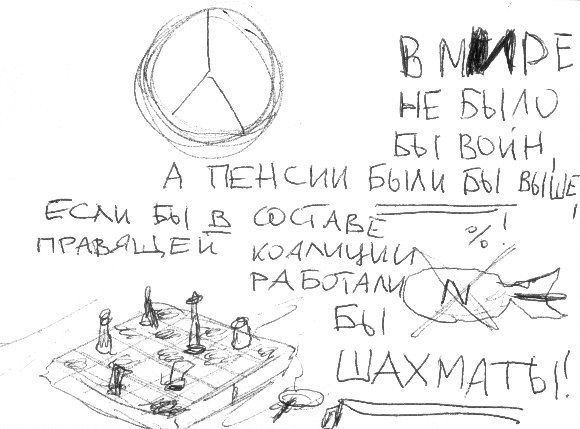 В МИРЕ
НЕ БЫЛО
БЫ ВОЙН,
А ПЕНСИИ БЫЛИ БЫ ВЫШЕ,
%!
ЕСЛИ БЫ В СОСТАВЕ
ПРАВЯЩЕЙ КОАЛИЦИИ
РАБОТАЛИ
N
БЫ
ШАХМАТЫ!